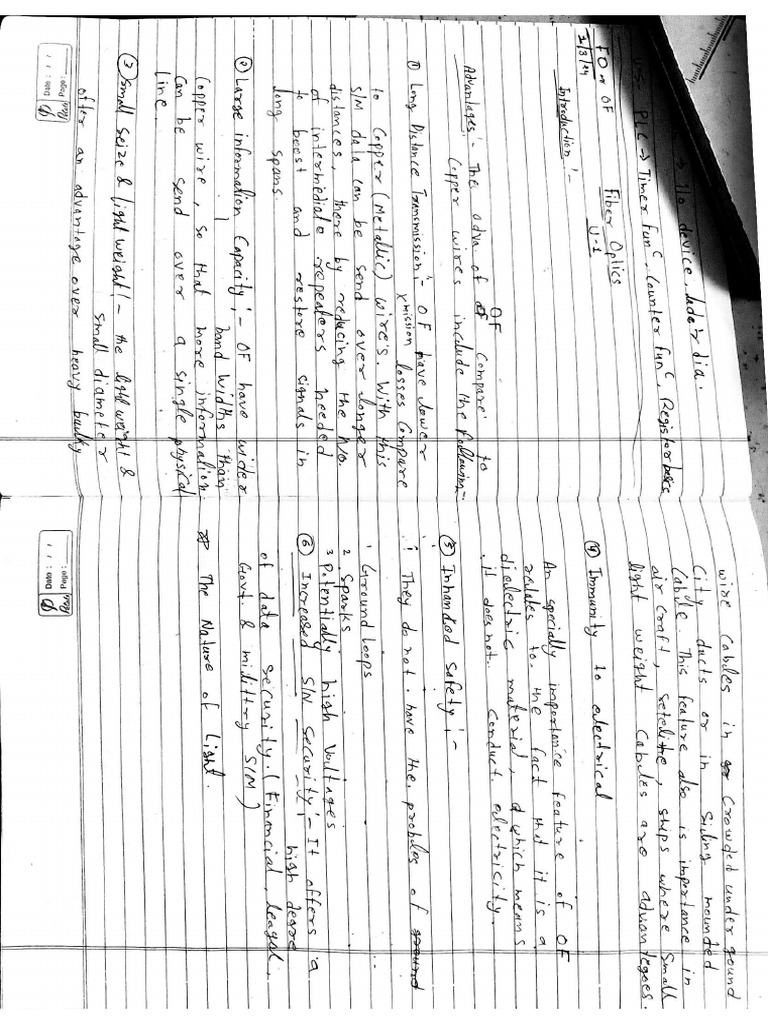 → I/o device, lader dia.
PLC → Timer funC, Counter funC, Register basics
FO or OF Fiber Optics
1/3/24 U-1
Introduction :-
OF
Advantages :- The adva. of compare to
Copper wires include the following -
① Long Distance Transmission :- OF have lower
xmission losses compare
to Copper (Metallic) wire's. With this
S/N data can be send over longer
distances, there by reducing the No.
of intermediate repeaters needed
to boost and restore signals in
long spans.
② Large information Capacity :- OF have wider
band widths than
Copper wire, so that more information
Can be send over a single physical
line.
③ Small seize & light weight :- the light weight &
small diameter
offer an advantage over heavy baulky
Page:
Date: / /
wire Cables in Crowded under gound
City ducts or in Siding mounded
Cable. This feature also is importance in
air craft, setelite, ships where small
light weight Cabules are advantegoes.
④ Immunity to electrical
An specially importance feature of OF
relates to the fact that it is a
dielectric material, which means
it does not conduct electricity.
⑤ Inhanded Safety :-
They do not have the probles of ground
1 Ground loops
2 Sparks
3 Potentially high Voltages
⑥ Increased S/N Security :- It offers a
high degree
of data security. (Financial, leagal,
Govt. & midittry S/M)
The Nature of Light.
Page:
Date: / /